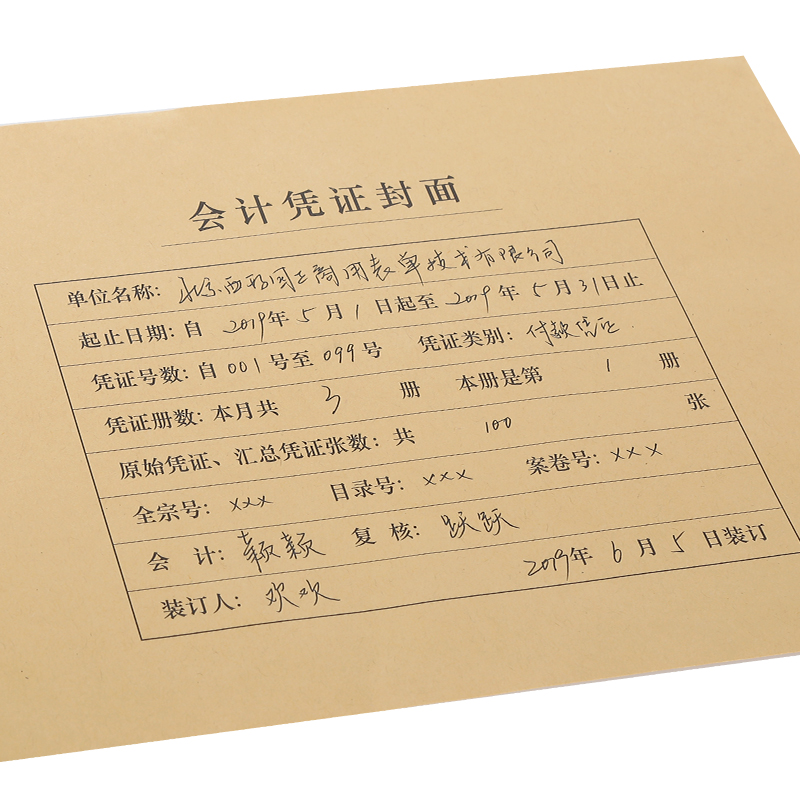 会计凭证封面
单位名称: 北京西玛国正商用表单技术有限公司
起止日期: 自 2019年 5 月 1 日起至 2019 年 5 月 31日止
凭证号数: 自 001 号至 099 号 凭证类别: 付款凭证
凭证册数: 本月共 3 册 本册是第 1 册
原始凭证、汇总凭证张数: 共 100 张
全宗号: xxx 目录号: xxx 案卷号: xxx
会 计: 颖颖 复 核: 跃跃
装订人: 欢欢 2019年 6 月 5 日装订